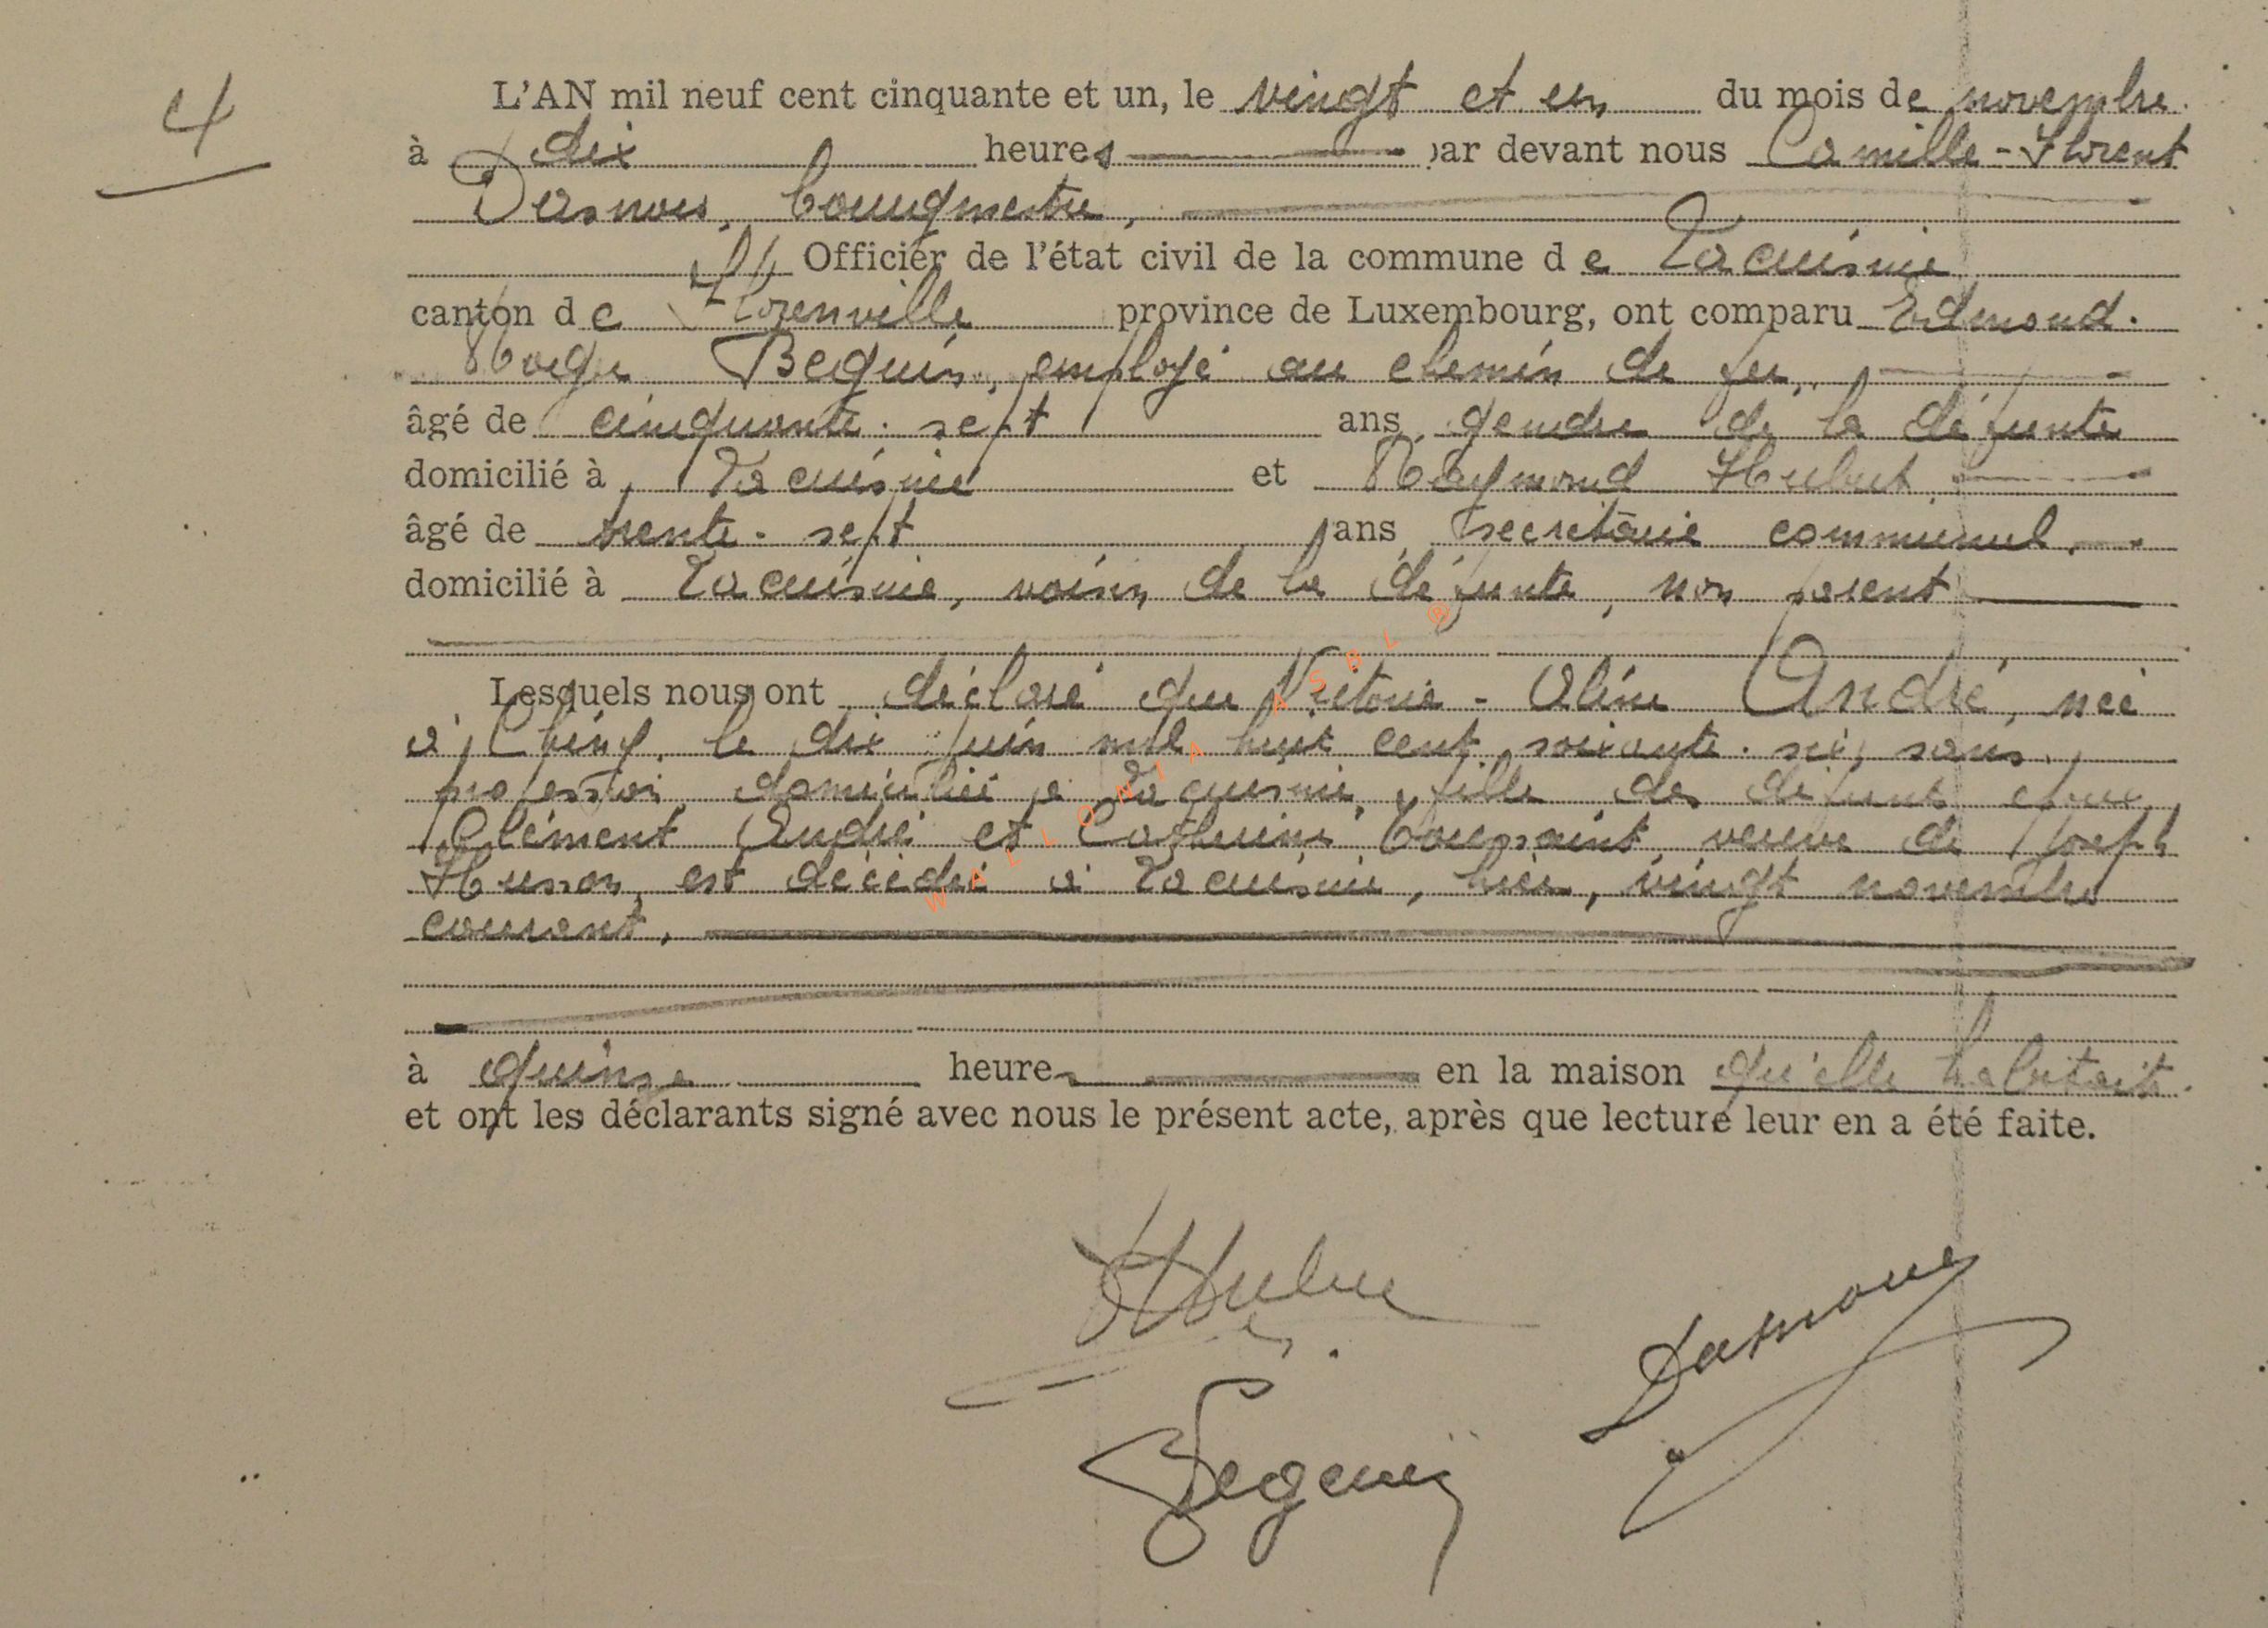 4
L'AN mil neuf cent cinquante et un, le vingt et un du mois de novembre
à dix heures par devant nous Camille-Florent
Dasnois, bourgmestre,
Officier de l'état civil de la commune de Lacuisine
canton de Florenville province de Luxembourg, ont comparu Edmond
Bequin, employé au chemin de fer,
âgé de cinquante-sept ans gendre de la défunte
domicilié à Lacuisine et Raymond Hubert
âgé de trente-sept ans secrétaire communal,
domicilié à Lacuisine, voisin de la défunte, non parent
Lesquels nous ont déclaré que Victoire-Aline André, née
à Chiny, le dix juin mil huit cent soixante-six, sans
profession, domiciliée à Lacuisine, fille des défunts époux
Clément André et Catherine Toussaint, veuve de Joseph
Husson, est décédée à Lacuisine, hier, vingt novembre
courant,
à quinze heures en la maison qu'elle habitait.
et ont les déclarants signé avec nous le présent acte, après que lecture leur en a été faite.
WALLONIA ASBL ®
Bequin